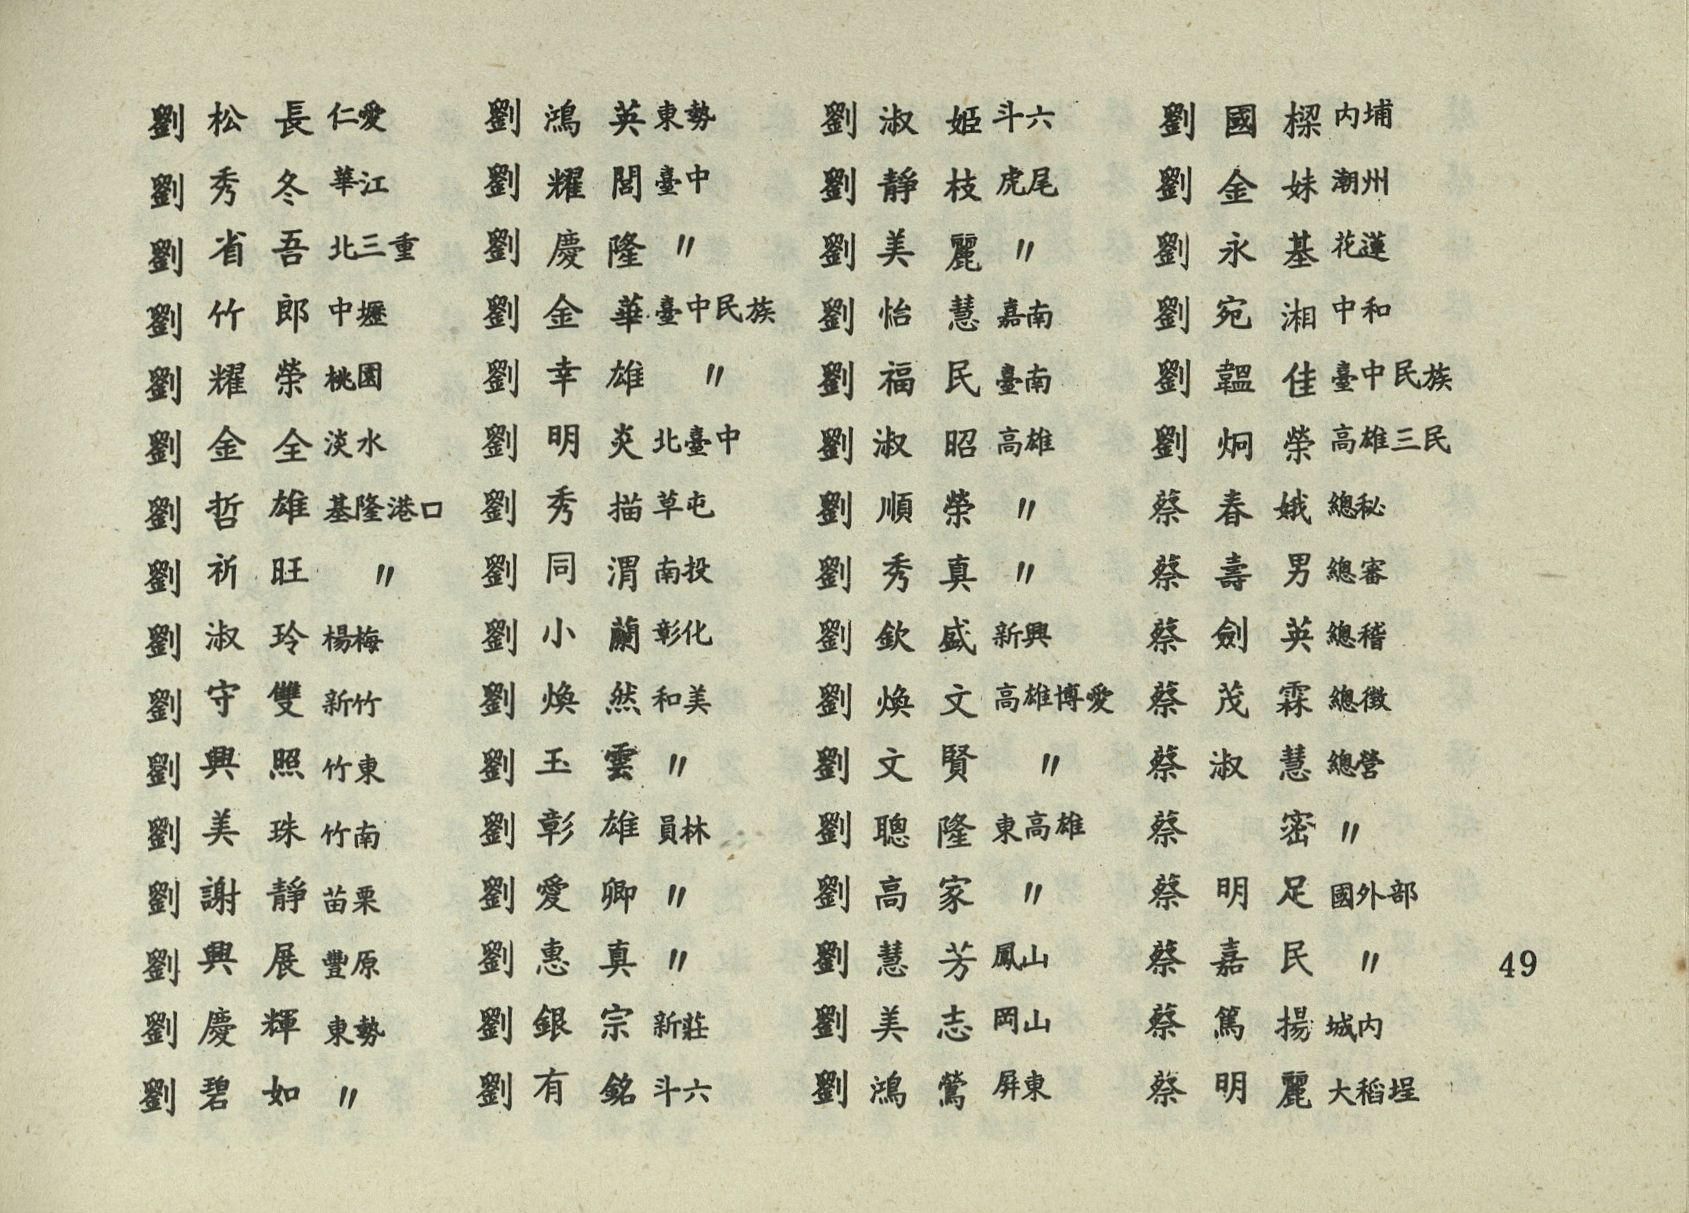 劉松長 仁愛
劉秀冬 華江
劉省吾 北三重
劉竹郎 中壢
劉耀榮 桃園
劉金全 淡水
劉哲雄 基隆港口
劉祈旺 〃
劉淑玲 楊梅
劉守雙 新竹
劉興照 竹東
劉美珠 竹南
劉謝靜 苗栗
劉興展 豐原
劉慶輝 東勢
劉碧如 〃
劉鴻英 東勢
劉耀閭 臺中
劉慶隆 〃
劉金華 臺中民族
劉幸雄 〃
劉明炎 北臺中
劉秀描 草屯
劉同渭 南投
劉小蘭 彰化
劉煥然 和美
劉玉雲 〃
劉彰雄 員林
劉愛卿 〃
劉惠真 〃
劉銀宗 新莊
劉有銘 斗六
劉淑姬 斗六
劉靜枝 虎尾
劉美麗 〃
劉怡慧 嘉南
劉福民 臺南
劉淑昭 高雄
劉順榮 〃
劉秀真 〃
劉欽盛 新興
劉煥文 高雄博愛
劉文賢 〃
劉聰隆 東高雄
劉高家 〃
劉慧芳 鳳山
劉美志 岡山
劉鴻鶯 屏東
劉國樑 内埔
劉金妹 潮州
劉永基 花蓮
劉宛湘 中和
劉韞佳 臺中民族
劉炯榮 高雄三民
蔡春娥 總秘
蔡壽男 總審
蔡劍英 總稽
蔡茂霖 總徵
蔡淑慧 總營
蔡密 〃
蔡明足 國外部
蔡嘉民 〃
蔡篤揚 城内
蔡明麗 大稻埕
49